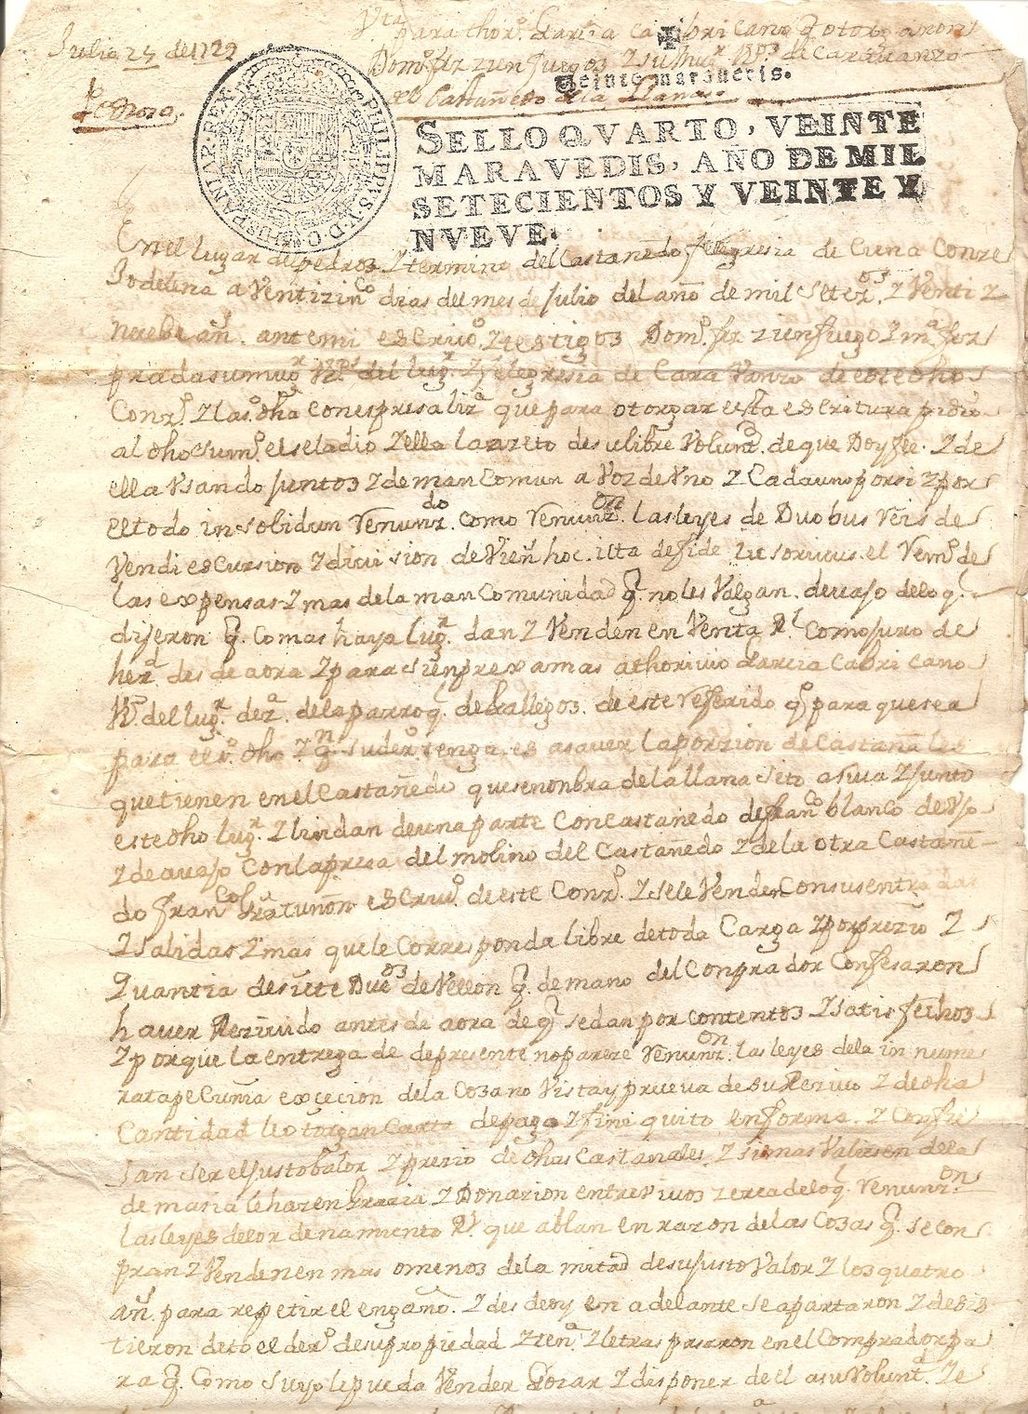 Julio 25 de 1729
Pedrozo,
Vta para thorº Garcia Cabricano
Domº frz zienfuegos
Veinte maravedis.
Castañedo de la Llana
PHILIPPUS V D G HISPANIAR REX
SELLO QVARTO, VEINTE
MARAVEDIS, AÑO DE MIL
SETECIENTOS Y VEINTE Y
NVEVE.
En el lugar de pedroz termino del Castañedo felegresia de Cuna Conze
Jo delena a Ventizinco dias del mes de Julio del año de mil setezos. Z Venti Z
nuebe añs. ante mi escrivº Z testigos Domº frz zienfuegos Z mª frz
prada su mugr Vzs del lugr. Z felegresia de Cara Vanzo de este dho
Conzº. Z la dha con espresa lizª que para otorgar esta escritura pidio
al dho su mº. el seladio Z ella lazeto de su libre Volund. de que Doy fee. Z de
ella Vsando juntos Z de man Comun a Voz de Vno Z Cada uno por si Z por
el todo in solidun Renunzdo. Como Renunzon. las leyes de Duobus Reis de
Vendi escursion Z divi sion de Vienes hoc. itta de fide el Remº de
las expensas Z mas de la man Comunidad q. no les Valgan. devajo de lo q.
dijeron q. Como mas haya lugr. dan Z Venden en Venta Rl. Como juro de
herd. des de aora Z para sienpre xamas a thorivio Garcia Cabricano
Vº. del lugr. de la parroqª. de Gallegos. de este Referido qº para que sea
para el dho Z qn su derº tenga. es a saver la porzion de Castañales
que tienen en el Castañedo que se nonbra de la llana seto asuia Z junto
este dho lugr. Z lindan de una parte Con Castañedo de franco blanco de
Z de avajo Con la presa del molino del Castañedo Z de la otra Castañe
do franco Gª tuñon escrivº. de este Conzº. Z se le Venden Con sus entradas
Z salidas Z mas que le Corresponda libre de toda Carga Z por prezio Z
Quantia de siete Ducos de Vellon q. de mano del Conprador Confesaron
haver Rezivido antes de aora de q. se dan por contentos Z satisfechos
Z por que la entrega de depresente no pareze Renunzon. las leyes de la in nume
rata pecunia exçeción de la Cosa no Vista y prueva de su Rezivo Z de dha
Cantidad le otorgan Carta de pago Z fini quito en forma. Z Confie
san ser el justo balor Z prezio de dhos Castañales. Z si mas Valiesen de la
de masia le hazen Grazia Z Donazion entre vivos zerca de lo q. Renunzon.
las leyes del or denamiento Rl que ablan en razon de las Cosas q. se con
pran Z Venden en mas o menos de la mitad de su justo Valor Z los quatro
añs. para repetir el engaño. Z des de oy en adelante se apartaron Z desis
tieron deto el derº de su propiedad Z tenª. Z letras pasaron en el Comprador pa
ra q. Como suyo le pueda Vender Gozar Z disponer de el a su Voluntd. Z e